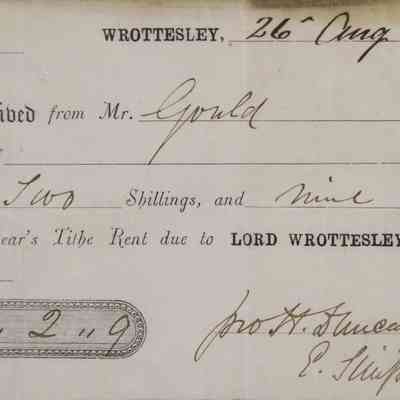 WROTTESLEY, 26 Aug
ived from Mr. Gould
Two Shillings, and nine
ear's Tithe Rent due to LORD WROTTESLEY
„ 2 „ 9
pro H. Dunca
E. Simp